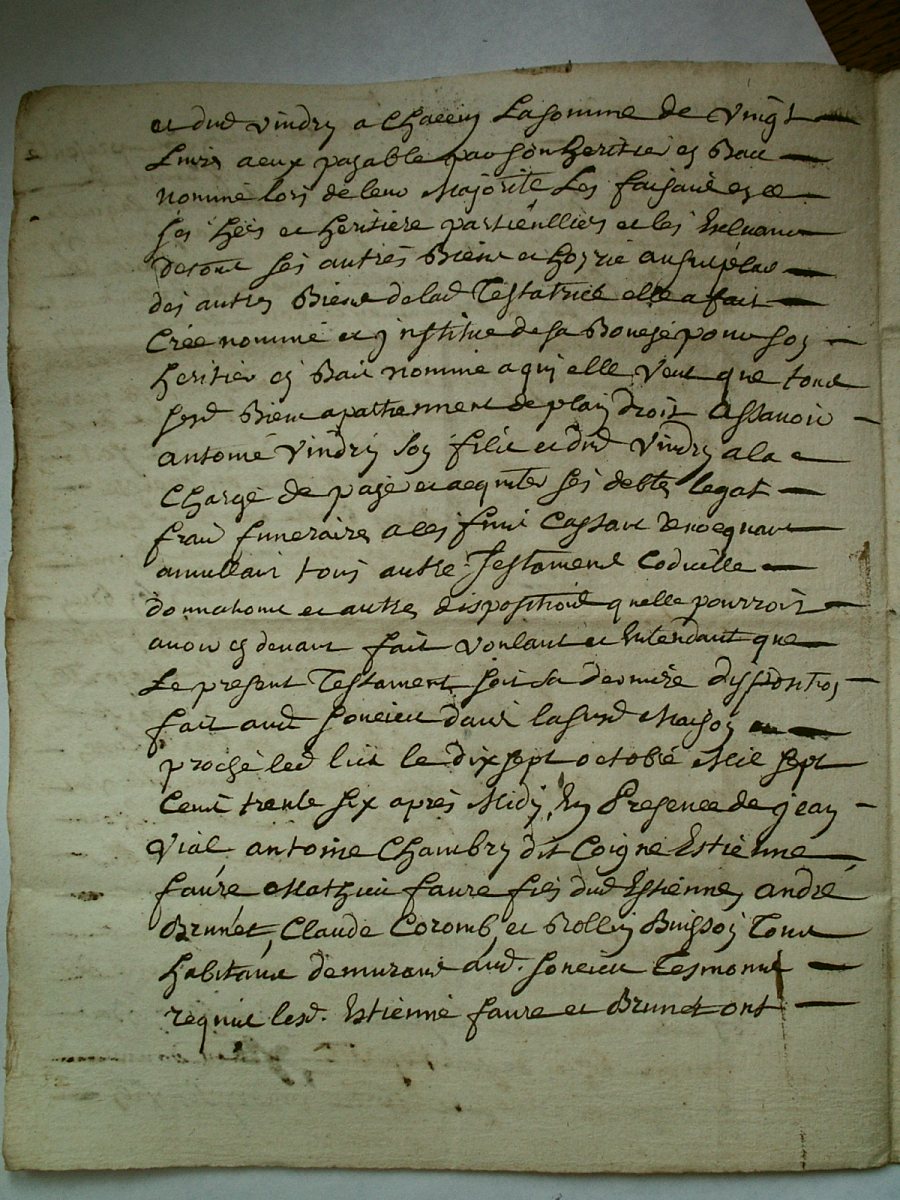 et dud vindry a chacun la somme de vingt
Livres a eux payable par son heritier en Bas
nommé lors de leur Majorité Les faisant en ce
ses hers et heritiere particulliers et les Excluant
de tout ses autres Biens et hoyrie au surplus
des autres Biens de lad Testatrice elle a fait
Créé nommé et jnstitue de sa Bouche pour son
heritier en Bas nommé a qui elle veut que tous
sesd Biens apattiennent de plain droit assavoir
antoine Vindry son fils et dud Vindry a la
Charge de payé et acquiter ses debtes legat
frais funeraires a ces fins Cassant Revoequant
annullant tous autre Testament Codicille
donnations et autres dispositions quelle pourroit
avoir cy devant fait voulant et Entendant que
Le present Testament soit sa derniere disposition
fait aud Soncieu dans la susd Maison
proche led lict le dix sept octobre Mil sept
Cent trente six après Midy, En Presence de jean
Vial antoine Chambry dit Coigne Estienne
faure Mathieu faure fils dud Estienne, andré
Brunet, Claude Coromb, et Rollin Buisson Tous
habitans demurant aud. Soncieu Tesmoins
requis lesd. Estienne faure et Brunet ont